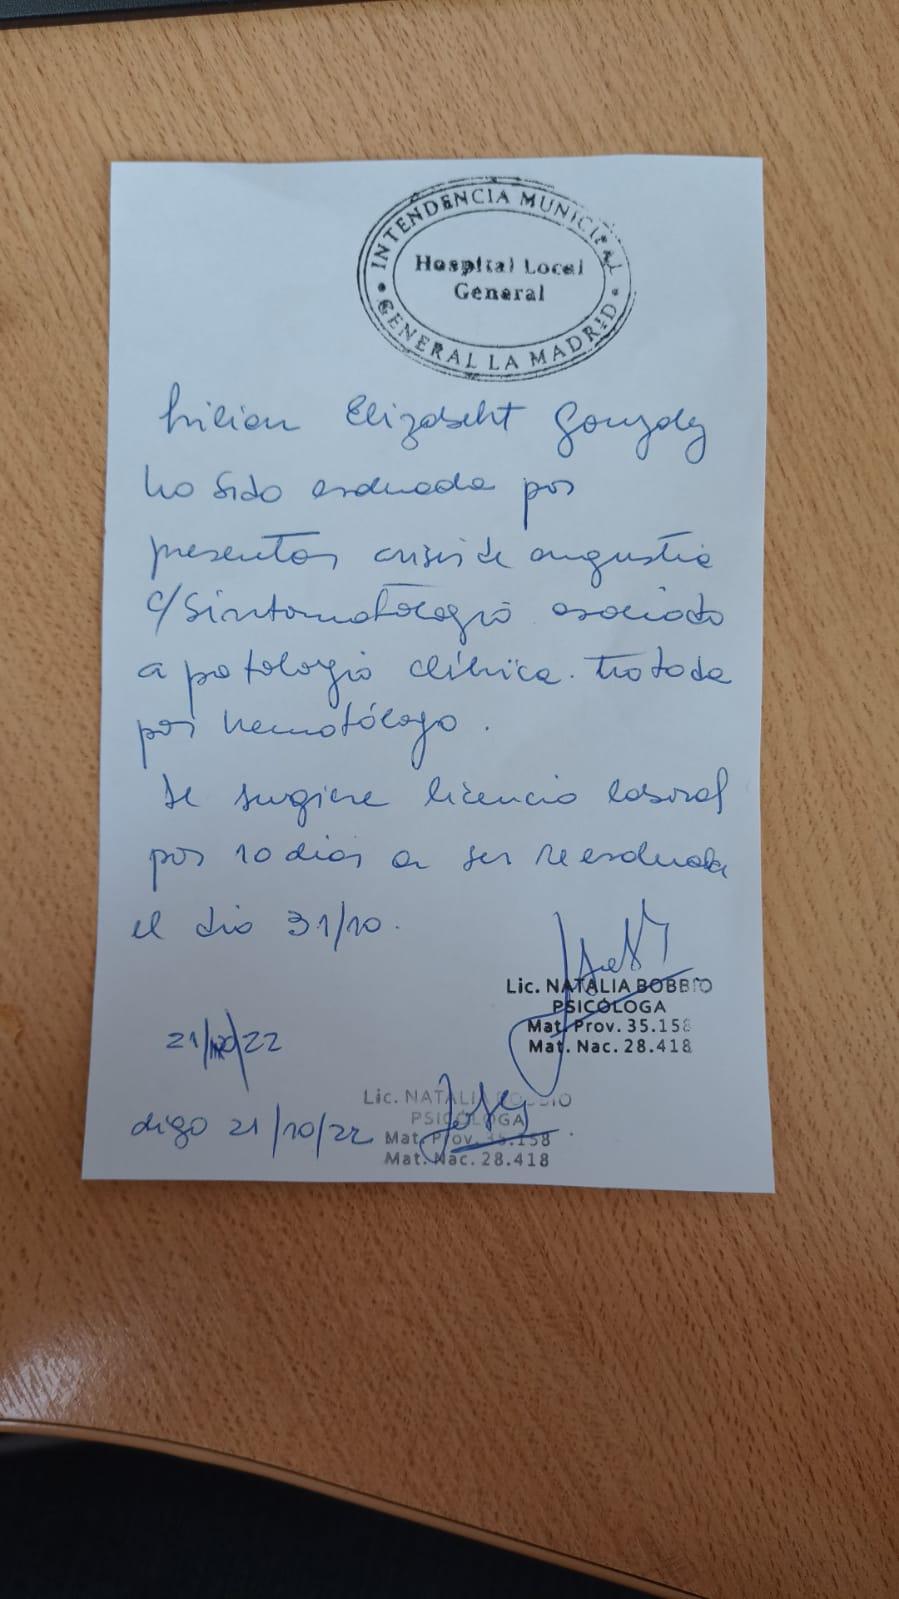 INTENDENCIA MUNICIPAL
Hospital Local
General
GENERAL LA MADRID
Lilian Elizabeht Gonzalez
ha sido evaluada por
presentar crisis de angustia
c/sintomatologia asociada
a patologia clínica. tratada
por hematólogo.
Se sugiere licencia laboral
por 10 dias a ser reevaluada
el dia 31/10.
Lic. NATALIA BOBBIO
PSICÓLOGA
Mat. Prov. 35.158
Mat. Nac. 28.418
21/10/22
Lic. NATALIA BOBBIO
PSICÓLOGA
digo 21/10/22
Mat. Prov. 35.158
Mat. Nac. 28.418